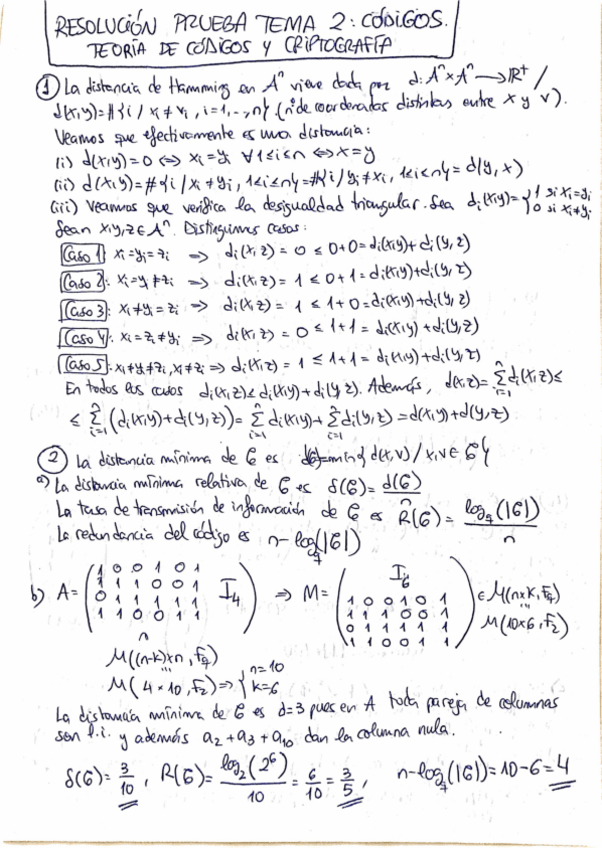 RESOLUCIÓN PRUEBA TEMA 2: CÓDIGOS.
TEORÍA DE CÓDIGOS Y CRIPTOGRAFÍA
① La distancia de Hamming en Aⁿ viene dada por d: Aⁿ×Aⁿ → ℝ⁺ /
d(x,y)=#{i / xᵢ ≠ vᵢ, i=1,..,n} (nº de coordenadas distintas entre x y v).
Veamos que efectivamente es una distancia:
(i) d(x,y)=0 ⇔ xᵢ=yᵢ ∀1≤i≤n ⇔ x=y
(ii) d(x,y)=#{i / xᵢ≠yᵢ, 1≤i≤n}=#{i / yᵢ≠xᵢ, 1≤i≤n}=d(y,x)
(iii) Veamos que verifica la desigualdad triangular. Sea dᵢ(x,y)={1 si xᵢ=yᵢ 0 si xᵢ≠yᵢ
Sean x,y,z∈Aⁿ. Distinguimos casos:
Caso 1: xᵢ=yᵢ=zᵢ ⇒ dᵢ(x,z)=0 ≤ 0+0=dᵢ(x,y)+dᵢ(y,z)
Caso 2: xᵢ=yᵢ≠zᵢ ⇒ dᵢ(x,z)=1 ≤ 0+1=dᵢ(x,y)+dᵢ(y,z)
Caso 3: xᵢ≠yᵢ=zᵢ ⇒ dᵢ(x,z)=1 ≤ 1+0=dᵢ(x,y)+dᵢ(y,z)
Caso 4: xᵢ=zᵢ≠yᵢ ⇒ dᵢ(x,z)=0 ≤ 1+1=dᵢ(x,y)+dᵢ(y,z)
Caso 5: xᵢ≠yᵢ≠zᵢ, xᵢ≠zᵢ ⇒ dᵢ(x,z)=1 ≤ 1+1=dᵢ(x,y)+dᵢ(y,z)
En todos los casos dᵢ(x,z)≤dᵢ(x,y)+dᵢ(y,z). Además, d(x,z)=∑ᵢ₌₁ⁿ dᵢ(x,z)≤
≤ ∑ᵢ₌₁ⁿ (dᵢ(x,y)+dᵢ(y,z))=∑ᵢ₌₁ⁿ dᵢ(x,y)+∑ᵢ₌₁ⁿ dᵢ(y,z)=d(x,y)+d(y,z)
② La distancia mínima de C es d(C)=min{d(x,v) / x,v∈C}
a) La distancia mínima relativa de C es δ(C)=d(C)/n
La tasa de transmisión de información de C es R(C)=log_q(|C|)/n
La redundancia del código es n-log_q(|C|)
b) A=( 1 0 0 1 0 1 ⇒ M=( I₆
1 1 1 0 0 1 I₄ ) 1 0 0 1 0 1
0 1 1 1 1 1 1 1 1 0 0 1 ) ∈ M(n×k, F_q)
1 1 0 0 1 1 0 1 1 1 1 1 M(10×6, F₂)
1 1 0 0 1 1
M((n-k)×n, F_q)
M(4×10, F₂) ⇒ { n=10 k=6
La distancia mínima de C es d=3 pues en A toda pareja de columnas
son l.i. y además a₂+a₃+a₁₀ dan la columna nula.
δ(C)=3/10, R(C)=log₂(2⁶)/10=6/10=3/5, n-log_q(|C|)=10-6=4